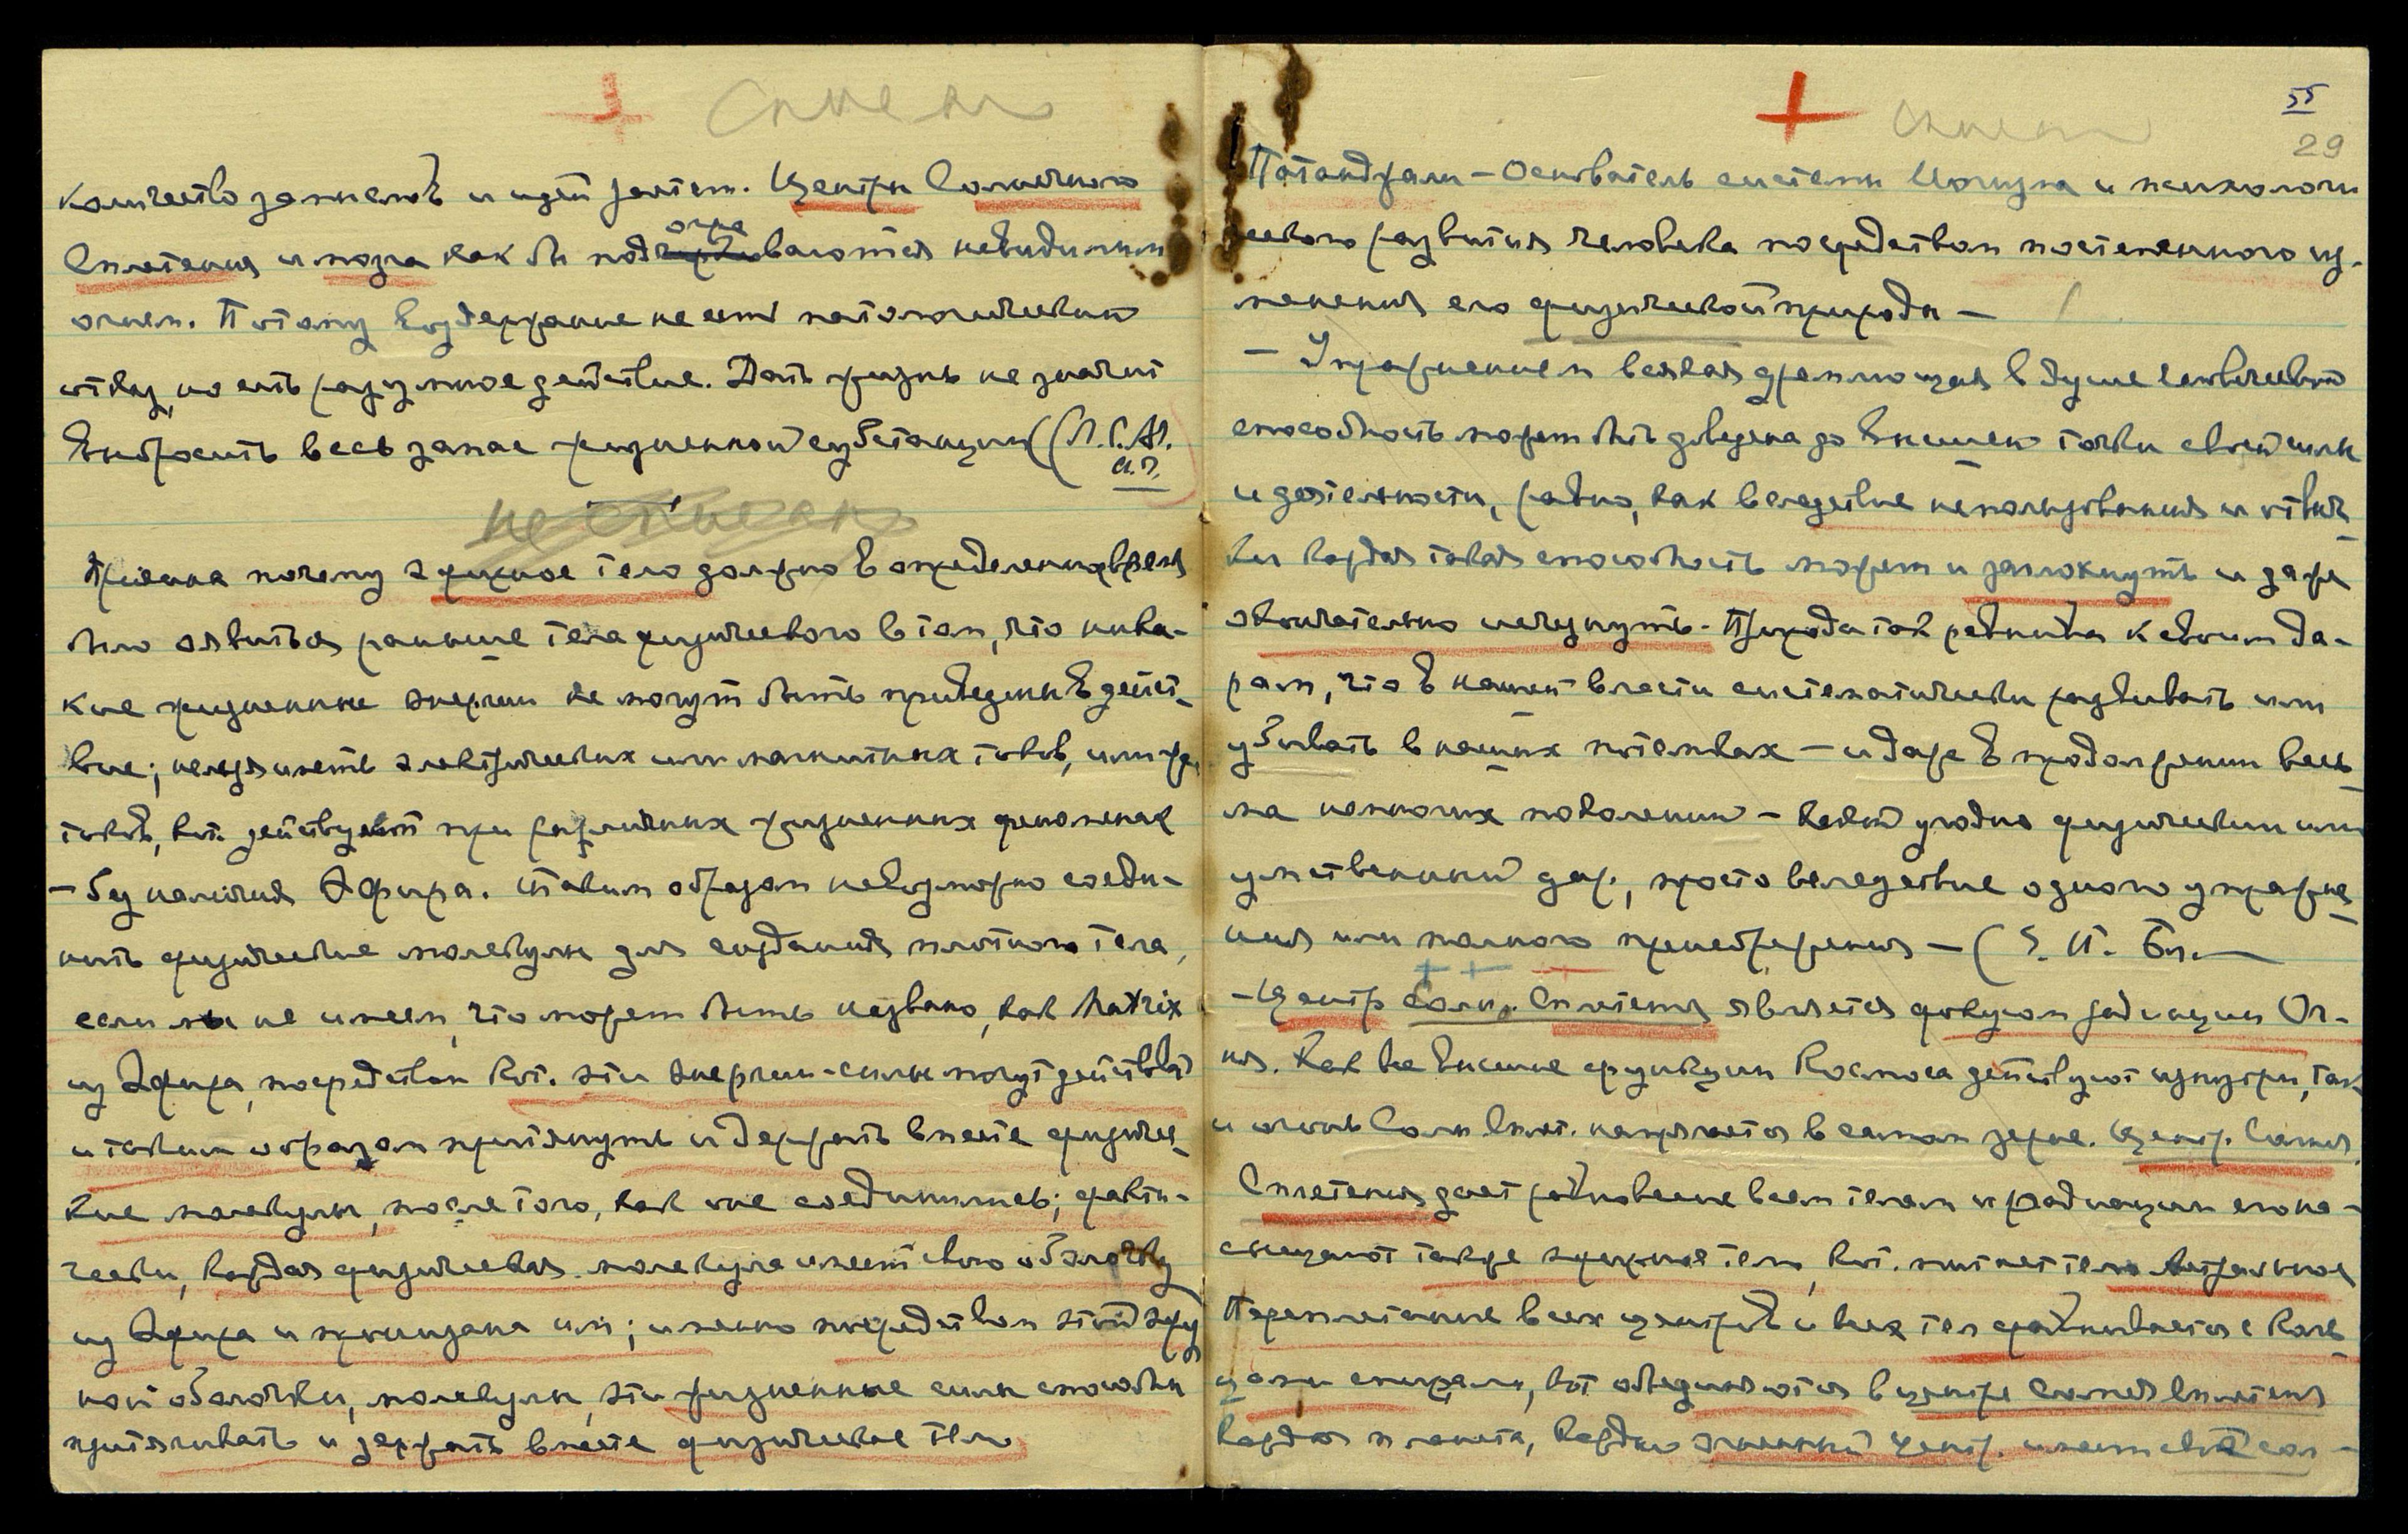 количество замыслов и идей растет. Центры Солнечного
Сплетения и мозга как бы подчеркиваются невидимым
огра
огнем. Потому воздержание не есть патологический
отказ, но есть разумное действие. Дать жизнь не значит
выбросить весь запас жизненной субстанции
не списано
Причина почему эфирное тело должно в определенное время
было явиться раньше тела физического в том, что ника-
кие жизненные энергии не могут быть приведены в дейст-
вие; нельзя иметь электрических или магнитных токов, или
токов, кот. действуют при различных жизненных феноменах
– без наличия Эфира. Таким образом невозможно соеди-
нить физические молекулы для создания плотного тела,
если мы не имеем, что может быть названо, как Matrix
из Эфира, посредством кот. эти энергии-силы могут действовать
и таким образом притянуть и держать вместе физичес-
кие молекулы, после того, как они соединились; факти-
чески, каждая физическая молекула имеет свою оболочку
из Эфира и проницаема им; именно посредством этой эфир
ной оболочки, молекулы, эти жизненные силы способны
притягивать и держать вместе физическое тело
55
29
Патанджали – Основатель системы Йогизма и психологи
ческого развития человека посредством постепенного из-
менения его физической природы –
– Упражнением всякая дремлющая в душе человеческой
способность может быть доведена до высшей точки своей силы
и деятельности, равно, как вследствие неиспользования и отвыч
ки каждая такая способность может и заглохнуть и даже
окончательно исчезнуть. Природа так ревнива к своим да-
рам, что в нашей власти систематически развивать или
убивать в наших потомках – и даже в продолжении весь-
ма немногих поколений – какой угодно физический или
умственный дар, просто вследствие одного упражне-
ния или полного пренебрежения – (Е. П. Бл.
– Центр Солн. Сплетения является фокусом радиации Ог-
ня. Как все высшие функции Космоса действуют изнутри, так
и огонь Солн Сплет. напрягается в самом зерне. Центр. Солнеч.
Сплетения дает равновесие всем телам и радиации его на-
сыщают также эфирное тело, кот. питает тело астральное
Переплетение всех центров и всех тел сравнивается с коль
цами спирали, кот объединяются в центре Солнеч Сплетения
Каждая планета, каждый огненный центр. имеет свой сол-